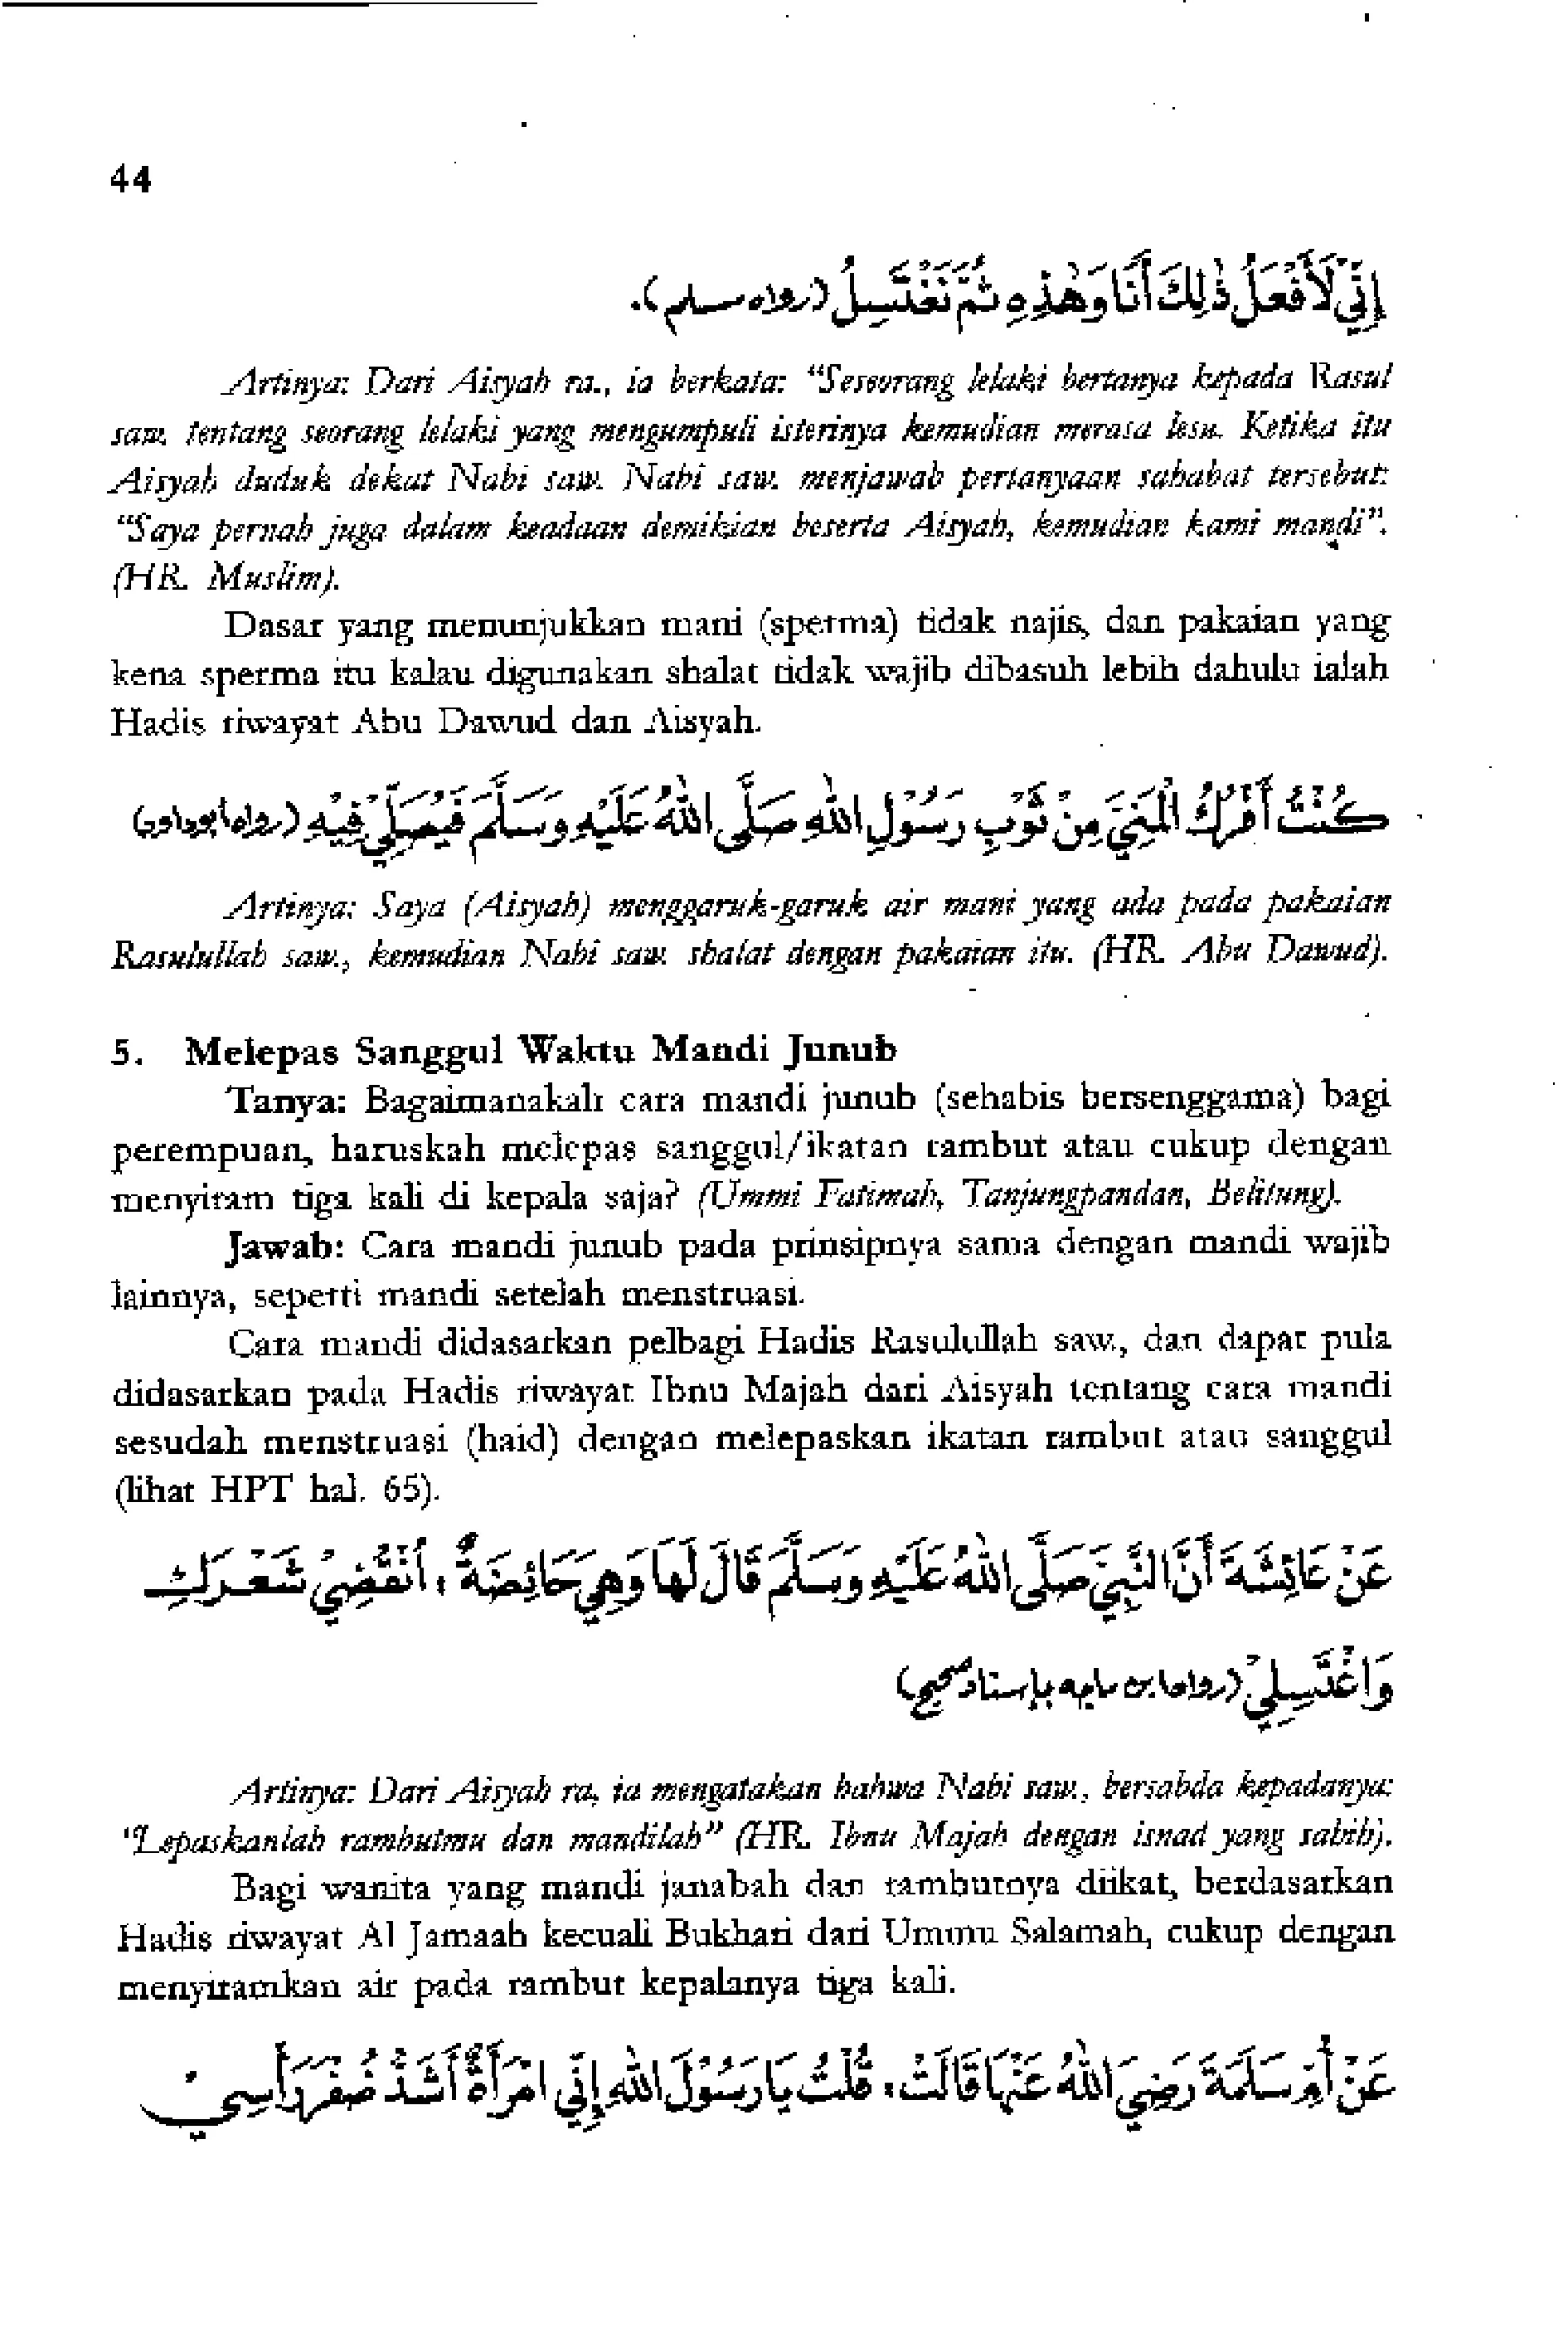 44
إِنِّي لَأَفْعَلُ ذٰلِكَ أَنَا وَهٰذِهِ ثُمَّ نَغْتَسِلُ (رواه مسلم).
Artinya: Dari Aisyah ra., ia berkata: "Seseorang lelaki bertanya kepada Rasul
saw. tentang seorang lelaki yang mengumpuli isterinya kemudian merasa lesu. Ketika itu
Aisyah duduk dekat Nabi saw. Nabi saw. menjawab pertanyaan sahabat tersebut:
"Saya pernah juga dalam keadaan demikian beserta Aisyah, kemudian kami mandi".
(HR. Muslim).
Dasar yang menunjukkan mani (sperma) tidak najis, dan pakaian yang
kena sperma itu kalau digunakan shalat tidak wajib dibasuh lebih dahulu ialah
Hadis riwayat Abu Dawud dan Aisyah.
كُنْتُ أَفْرُكُ الْمَنِيَّ مِنْ ثَوْبِ رَسُوْلِ اللهِ صَلَّى اللهُ عَلَيْهِ وَسَلَّمَ فَيُصَلِّيْ فِيْهِ (رواه أبو داود)
Artinya: Saya (Aisyah) menggaruk-garuk air mani yang ada pada pakaian
Rasulullah saw., kemudian Nabi saw. shalat dengan pakaian itu. (HR. Abu Dawud).
5. Melepas Sanggul Waktu Mandi Junub
Tanya: Bagaimanakah cara mandi junub (sehabis bersenggama) bagi
perempuan, haruskah melepas sanggul/ikatan rambut atau cukup dengan
menyiram tiga kali di kepala saja? (Ummi Fatimah, Tanjungpandan, Belitung).
Jawab: Cara mandi junub pada prinsipnya sama dengan mandi wajib
lainnya, seperti mandi setelah menstruasi.
Cara mandi didasarkan pelbagi Hadis Rasulullah saw., dan dapat pula
didasarkan pada Hadis riwayat Ibnu Majah dari Aisyah tentang cara mandi
sesudah menstruasi (haid) dengan melepaskan ikatan rambut atau sanggul
(lihat HPT hal. 65).
عَنْ عَائِشَةَ أَنَّ النَّبِيَّ صَلَّى اللهُ عَلَيْهِ وَسَلَّمَ قَالَ لَهَا وَهِيَ حَائِضَةٌ، أُنْقُضِيْ شَعْرَكِ
وَاغْتَسِلِيْ (رواه ابن ماجه بإسناد صحيح)
Artinya: Dari Aisyah ra, ia mengatakan bahwa Nabi saw., bersabda kepadanya:
"Lepaskanlah rambutmu dan mandilah" (HR. Ibnu Majah dengan isnad yang sahih).
Bagi wanita yang mandi janabah dan rambutnya diikat, berdasarkan
Hadis riwayat Al Jamaah kecuali Bukhari dari Ummu Salamah, cukup dengan
menyiramkan air pada rambut kepalanya tiga kali.
عَنْ أُمِّ سَلَمَةَ رَضِيَ اللهُ عَنْهَا قَالَتْ، قُلْتُ يَا رَسُوْلَ اللهِ إِنِّي امْرَأَةٌ أَشَدُّ ضُفَرَ رَأْسِيْ